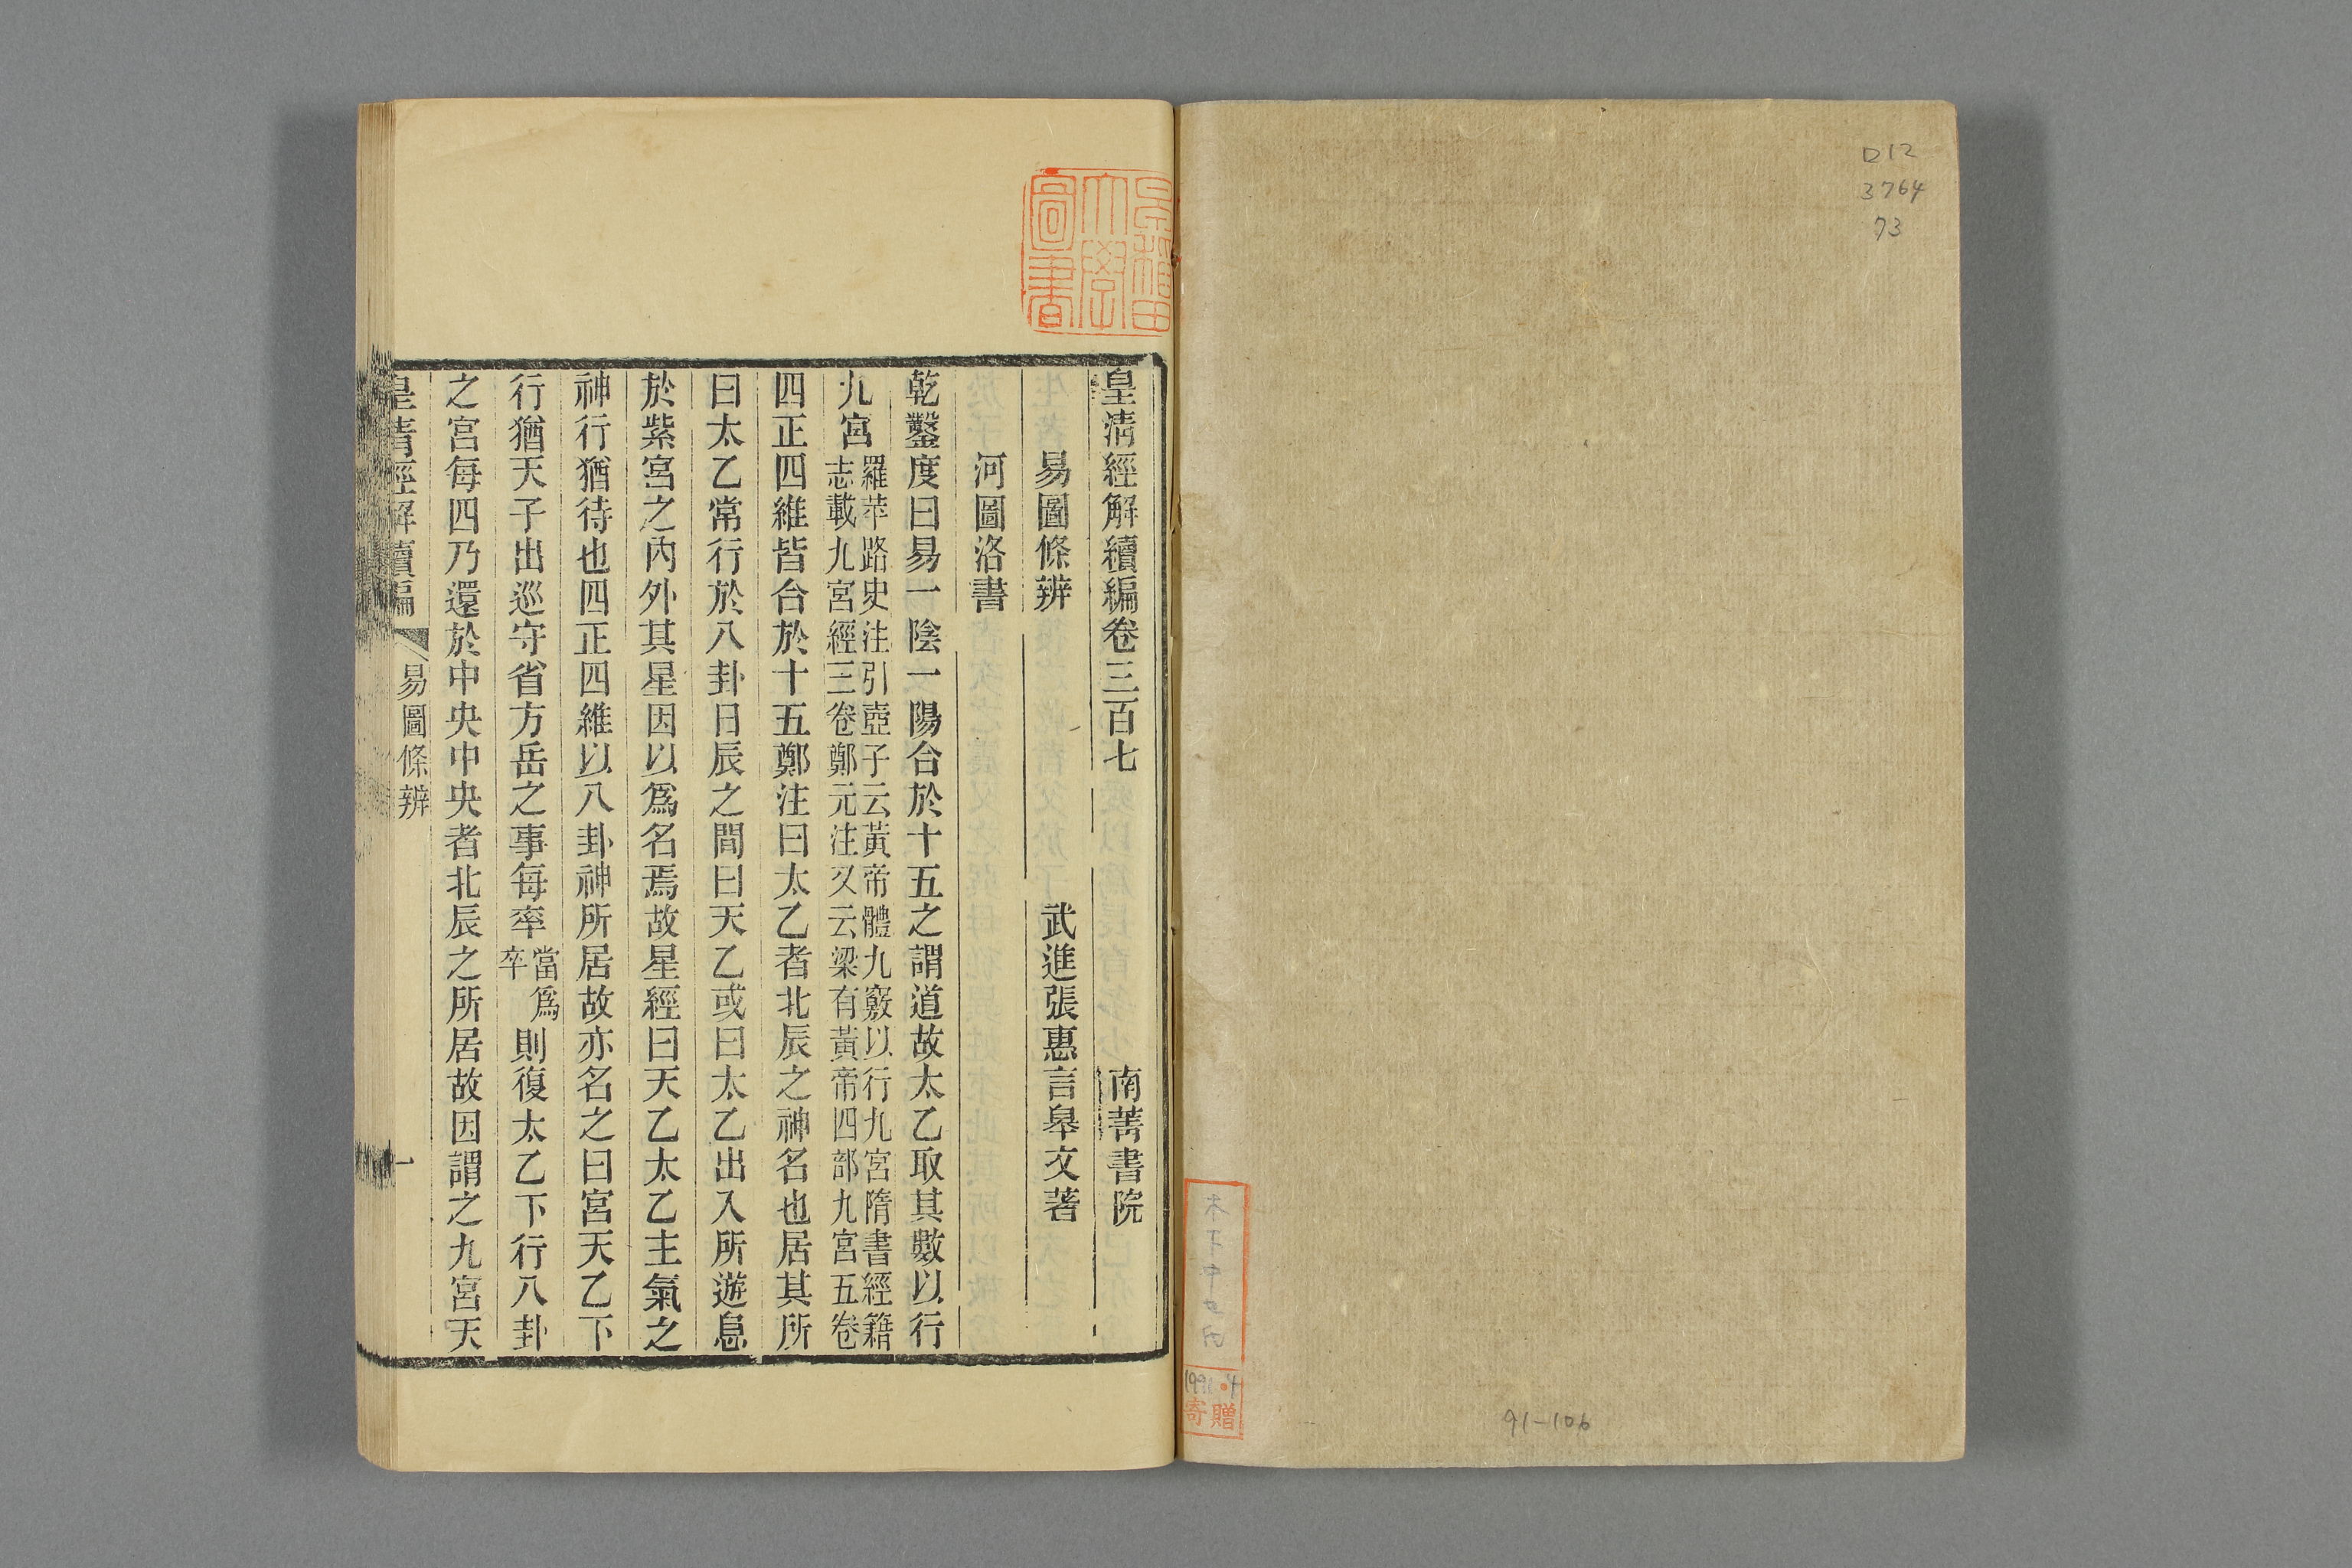 口12
3764
73
91-106
寄贈
早稲田
大學
圖書
皇清經解續編卷三百七　南菁書院
易圖條辨　武進張惠言皋文著
河圖洛書
乾鑿度曰易一陰一陽合於十五之謂道故太乙取其數以行
九宮羅苹路史注引壺子云黃帝體九竅以行九宮隋書經籍
志載九宮經三卷鄭元注又云梁有黃帝四部九宮五卷
四正四維皆合於十五鄭注曰太乙者北辰之神名也居其所
曰太乙常行於八卦日辰之間曰天乙或曰太乙出入所遊息
於紫宮之內外其星因以爲名焉故星經曰天乙太乙主氣之
神行猶待也四正四維以八卦神所居故亦名之曰宮天乙下
行猶天子出巡守省方岳之事每率當爲卒則復太乙下行八卦
之宮每四乃還於中央中央者北辰之所居故因謂之九宮天
皇清經解續編　易圖條辨　一